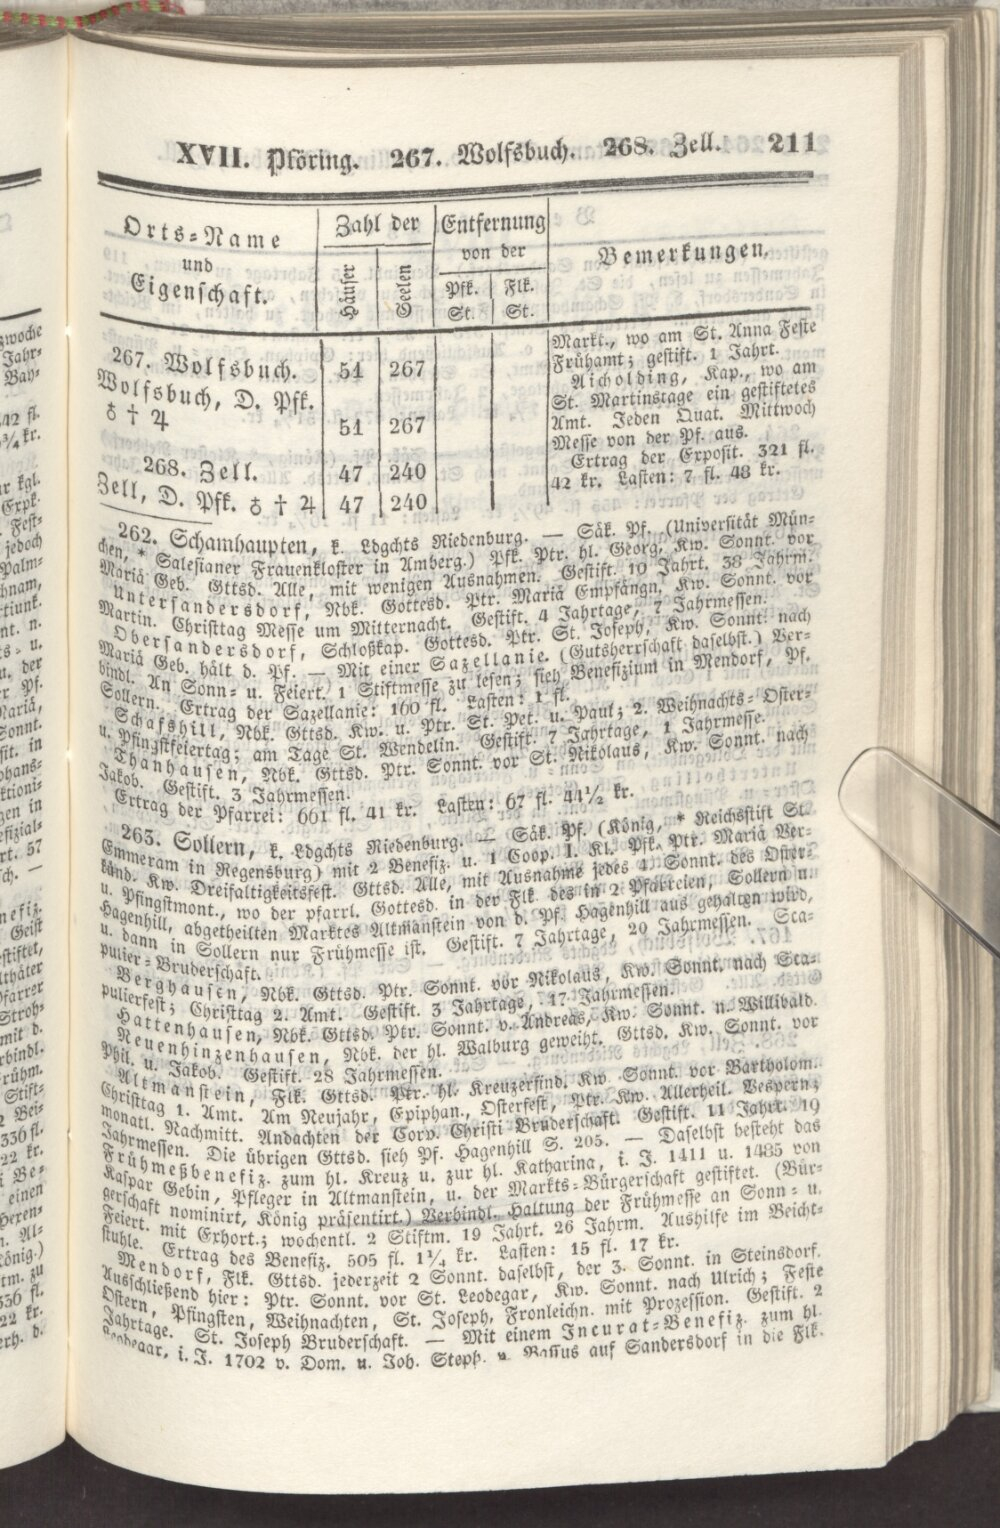 XVII. Pföring. 267. Wolfsbuch. 268. Zell. 211
Orts-Name
und
Eigenschaft.
Zahl der
Häuser
Seelen
Entfernung
von der
Pfk. Flk.
St. St.
Bemerkungen.
Markt., wo am St. Anna Feste
Frühamt; gestift. 1 Jahrt.
Aicholding, Kap., wo am
St. Martinstage ein gestiftetes
Amt. Jeden Quat. Mittwoch
Messe von der Pf. aus.
Ertrag der Exposit. 321 fl.
42 kr. Lasten: 7 fl. 48 kr.
267. Wolfsbuch. 51 267
Wolfsbuch, D. Pfk.
♁ † ♃ 51 267
268. Zell. 47 240
Zell, D. Pfk. ♁ † ♃ 47 240
262. Schamhaupten, k. Ldgchts Riedenburg. — Säk. Pf. (Universität Mün-
chen, * Salesianer Frauenkloster in Amberg.) Pfk. Ptr. hl. Georg, Kw. Sonnt. vor
Mariä Geb. Gttsd. Alle, mit wenigen Ausnahmen. Gestift. 19 Jahrt. 38 Jahrm.
Untersandersdorf, Nbk. Gottesd. Ptr. Mariä Empfängn, Kw. Sonnt. vor
Martin. Christtag Messe um Mitternacht. Gestift. 4 Jahrtage, 7 Jahrmessen.
Obersandersdorf, Schloßkap. Gottesd. Ptr. St. Joseph, Kw. Sonnt. nach
Mariä Geb. hält d. Pf. — Mit einer Sazellanie. (Gutsherrschaft daselbst.) Ver-
bindl. An Sonn- u. Feiert. 1 Stiftmesse zu lesen; sieh Benefizium in Mendorf, Pf.
Sollern. Ertrag der Sazellanie: 160 fl. Lasten: 1 fl.
Schafshill, Nbk. Gttsd. Kw. u. Ptr. St. Pet. u. Paul; 2. Weihnachts- Oster-
u. Pfingstfeiertag; am Tage St. Wendelin. Gestift. 7 Jahrtage, 1 Jahrmesse.
Thanhausen, Nbk. Gttsd. Ptr. Sonnt. vor St. Nikolaus, Kw. Sonnt. nach
Jakob. Gestift. 3 Jahrmessen.
Ertrag der Pfarrei: 661 fl. 41 kr. Lasten: 67 fl. 44½ kr.
263. Sollern, k. Ldgchts Riedenburg. — Säk. Pf. (König, * Reichsstift St.
Emmeram in Regensburg) mit 2 Benefiz. u. 1 Coop. I. Kl. Pfk. Ptr. Mariä Ver-
künd. Kw. Dreifaltigkeitsfest. Gttsd. Alle, mit Ausnahme jedes 4. Sonnt. des Oster-
u. Pfingstmont., wo der pfarrl. Gottesd. in der Flk des in 2 Pfarreien, Sollern u.
Hagenhill, abgetheilten Marktes Altmanstein von d. Pf. Hagenhill aus gehalten wird,
u. dann in Sollern nur Frühmesse ist. Gestift. 7 Jahrtage, 20 Jahrmessen. Sca-
pulier-Bruderschaft.
Berghausen, Nbk. Gttsd. Ptr. Sonnt. vor Nikolaus, Kw. Sonnt. nach Sca-
pulierfest; Christtag 2. Amt. Gestift. 3 Jahrtage, 17 Jahrmessen.
Hattenhausen, Nbk. Gttsd. Ptr. Sonnt. v. Andreas, Kw. Sonnt. n. Willibald.
Neuenhinzenhausen, Nbk. der hl. Walburg geweiht. Gttsd. Kw. Sonnt. vor
Phil. u. Jakob. Gestift. 28 Jahrmessen.
Altmanstein, Flk. Gttsd. Ptr. hl. Kreuzerfind. Kw. Sonnt. vor Bartholom.
Christtag 1. Amt. Am Neujahr, Epiphan., Osterfest, Ptr. Kw. Allerheil. Vespern;
monatl. Nachmitt. Andachten der Corp. Christi Bruderschaft. Gestift. 11 Jahrt. 19
Jahrmessen. Die übrigen Gttsd. sieh Pf. Hagenhill S. 205. — Daselbst besteht das
Frühmeßbenefiz. zum hl. Kreuz u. zur hl. Katharina, i. J. 1411 u. 1485 von
Kaspar Gebin, Pfleger in Altmanstein, u. der Markts-Bürgerschaft gestiftet. (Bür-
gerschaft nominirt, König präsentirt.) Verbindl. Haltung der Frühmesse an Sonn- u.
Feiert. mit Exhort.; wochentl. 2 Stiftm. 19 Jahrt. 26 Jahrm. Aushilfe im Beicht-
stuhle. Ertrag des Benefiz. 505 fl. 1¼ kr. Lasten: 15 fl. 17 kr.
Mendorf, Flk. Gttsd. jederzeit 2 Sonnt. daselbst, der 3. Sonnt. in Steinsdorf.
Ausschließend hier: Ptr. Sonnt. vor St. Leodegar, Kw. Sonnt. nach Ulrich; Feste
Ostern, Pfingsten, Weihnachten, St. Joseph, Fronleichn. mit Prozession. Gestift. 2
Jahrtage. St. Joseph Bruderschaft. — Mit einem Incurat-Benefiz. zum hl.
Leodegar, i. J. 1702 v. Dom. u. Joh. Steph. v. Bassus auf Sandersdorf in die Flk.